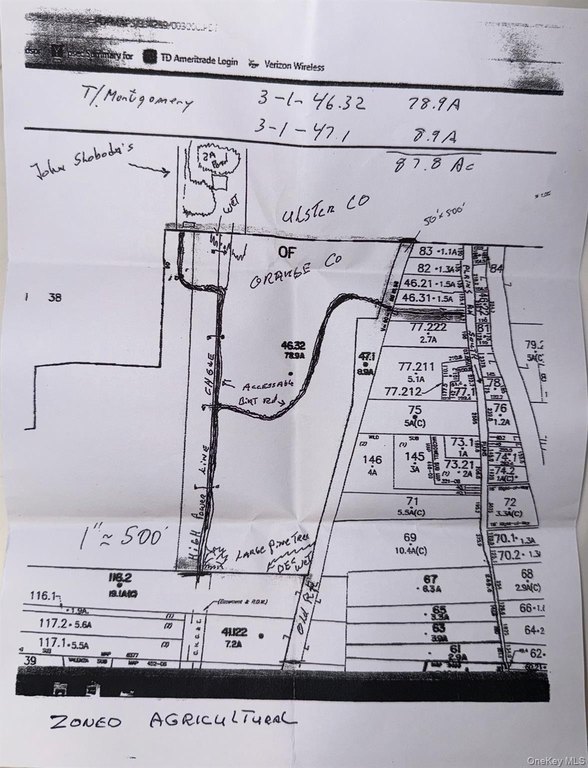 TD Ameritrade Login Verizon Wireless
T/Montgomery 3-1-46.32 78.9A
3-1-47.1 8.9A
87.8 Ac
John Sloboda's
2A
Pond
WET
ULSTER CO
50' x 500'
OF
ORANGE CO
38
83 • 1.1A
82 • 1.3A
46.21 • 1.5A
46.31 • 1.5A
84
81
46.32
78.9A
47.1
8.9A
77.222
2.7A
77.211
5.1A
77.212
77.1
78
79.2
ACCESSABLE
DIRT RD
75
5A(C)
76
1.2A
146
4A
145
3A
73.1
1A
73.21
2A
74.1
74.2
71
5.5A(C)
72
3.3A(C)
HIGH POWER LINE
1" ≈ 500'
LARGE PINE TREE
DEC WET
OLD RR
69
10.4A(C)
70.1 • 1.3A
70.2 • 1.3
116.2
19.1A(C)
116.1
1.9A
117.2 • 5.6A
117.1 • 5.5A
39
(Easement & R.O.W.)
C.H.G.& E.
41.122
7.2A
67
6.3A
65
3.3A
63
3.9A
61
68
2.9A(C)
66
64
62
ZONED AGRICULTURAL
OneKey MLS